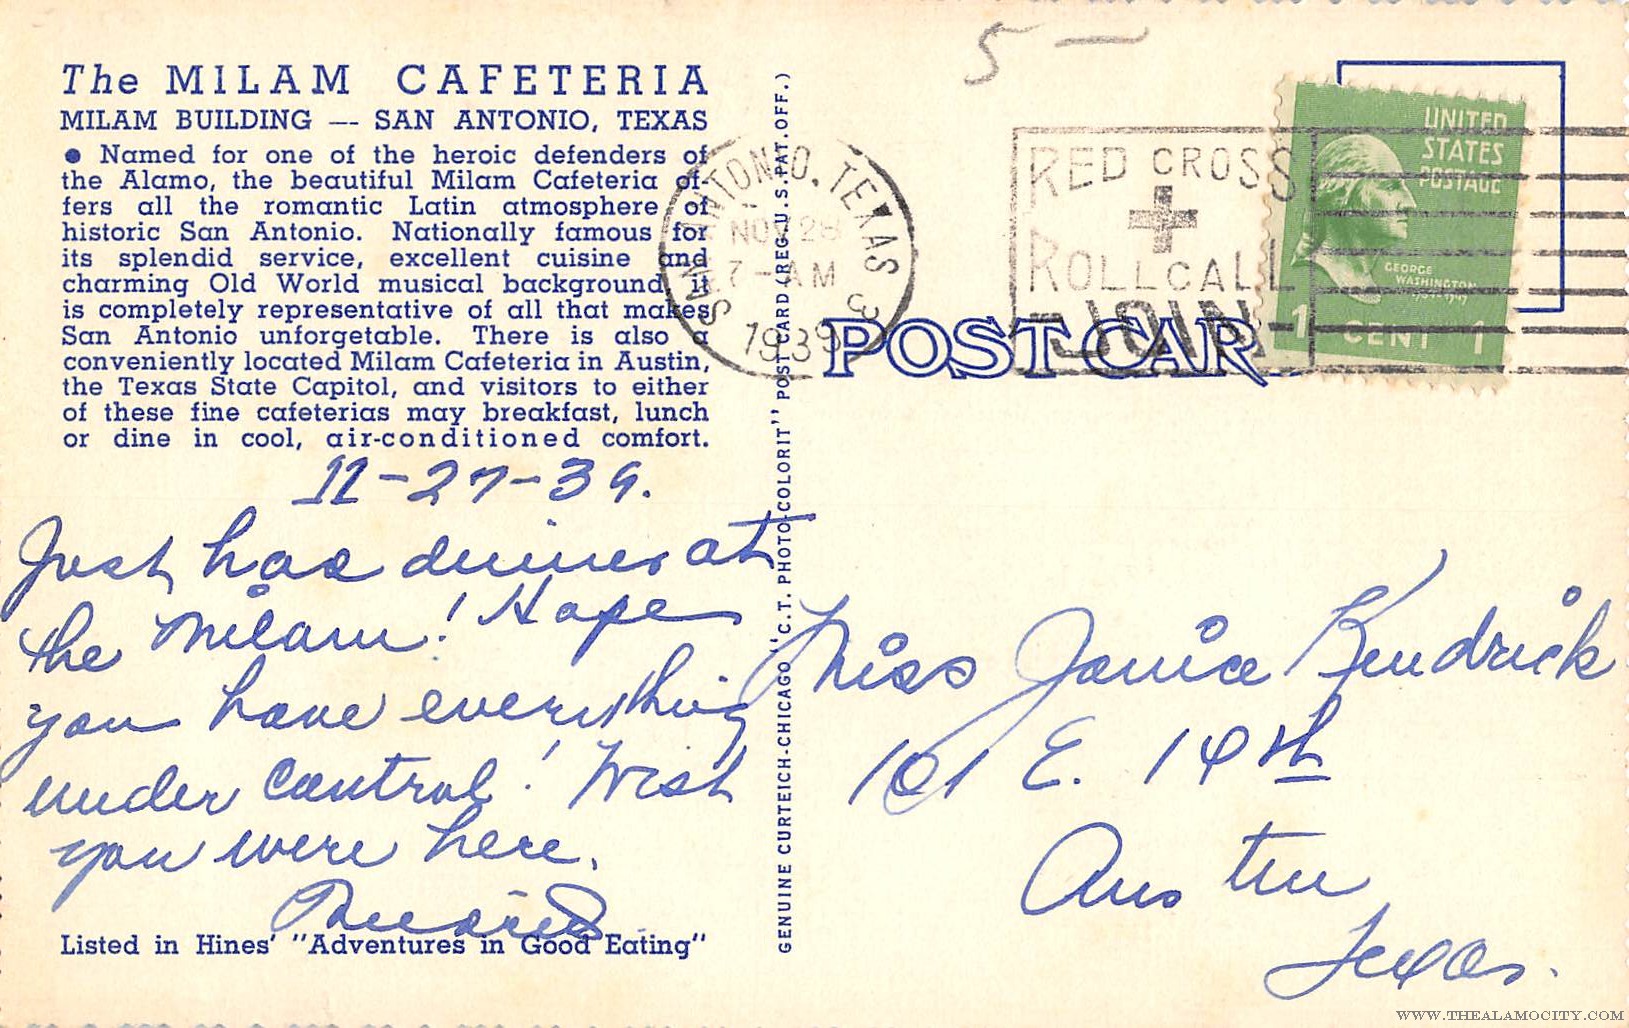 5 —
The MILAM CAFETERIA
MILAM BUILDING — SAN ANTONIO, TEXAS
● Named for one of the heroic defenders of
the Alamo, the beautiful Milam Cafeteria of-
fers all the romantic Latin atmosphere of
historic San Antonio. Nationally famous for
its splendid service, excellent cuisine and
charming Old World musical background, it
is completely representative of all that makes
San Antonio unforgetable. There is also a
conveniently located Milam Cafeteria in Austin,
the Texas State Capitol, and visitors to either
of these fine cafeterias may breakfast, lunch
or dine in cool, air-conditioned comfort.
11-27-39.
Just had dinner at
the Milam! Hope
you have everything
under control! Wish
you were here.
Listed in Hines' "Adventures in Good Eating"
GENUINE CURTEICH-CHICAGO "C.T. PHOTO-COLORIT" POST CARD (REG. U.S. PAT. OFF.)
SAN ANTONIO, TEXAS
NOV 28
7-AM
1939
RED CROSS
ROLL CALL
JOIN
UNITED
STATES
POSTAGE
GEORGE
WASHINGTON
1789-1797
1 CENT 1
POST CAR
Miss Janice Kendrick
101 E. 19th
Austin
Texas.
WWW.THEALAMOCITY.COM